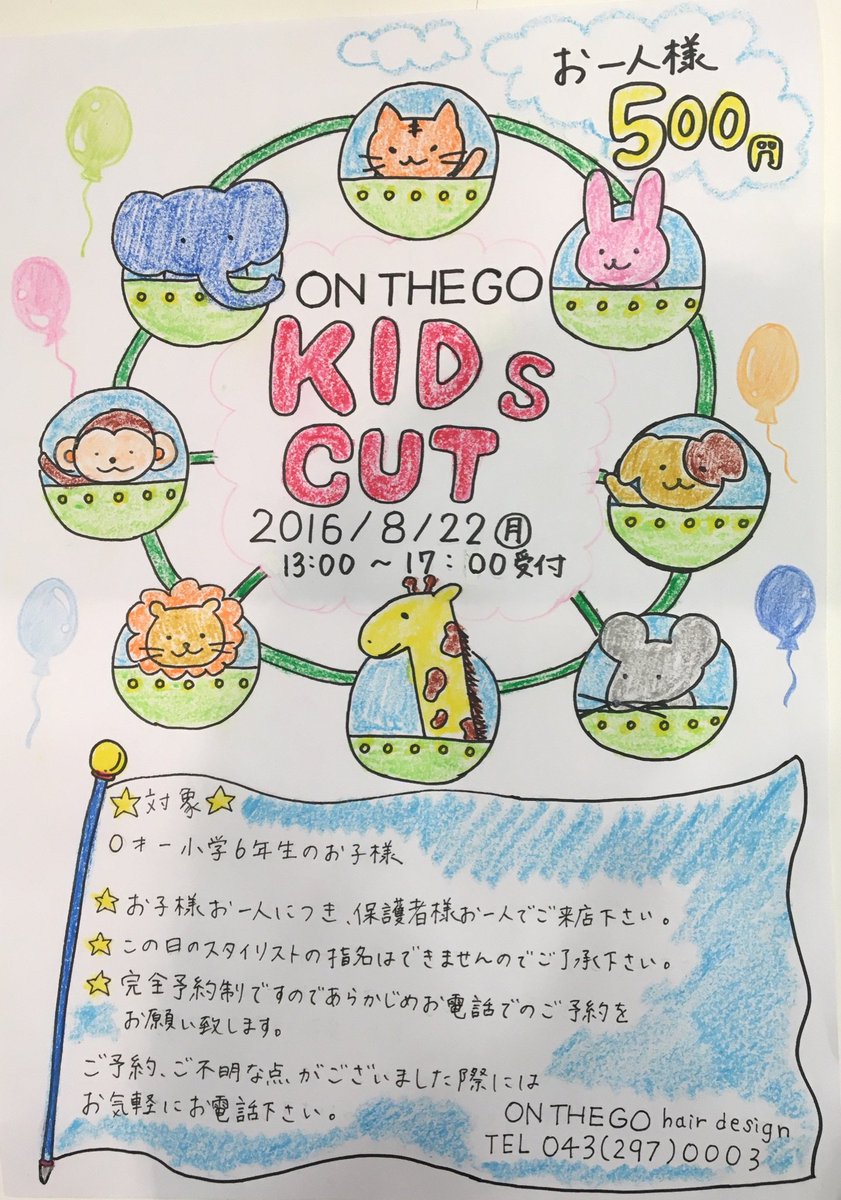 お一人様
500円
ON THE GO
KIDS
CUT
2016/8/22㊊
13:00〜17:00受付
☆対象☆
0才ー小学6年生のお子様
☆お子様お一人につき、保護者様お一人でご来店下さい。
☆この日のスタイリストの指名はできませんのでご了承下さい。
☆完全予約制ですのであらかじめお電話でのご予約を
お願い致します。
ご予約、ご不明な点がございました際には
お気軽にお電話下さい。
ON THE GO hair design
TEL 043(297)0003